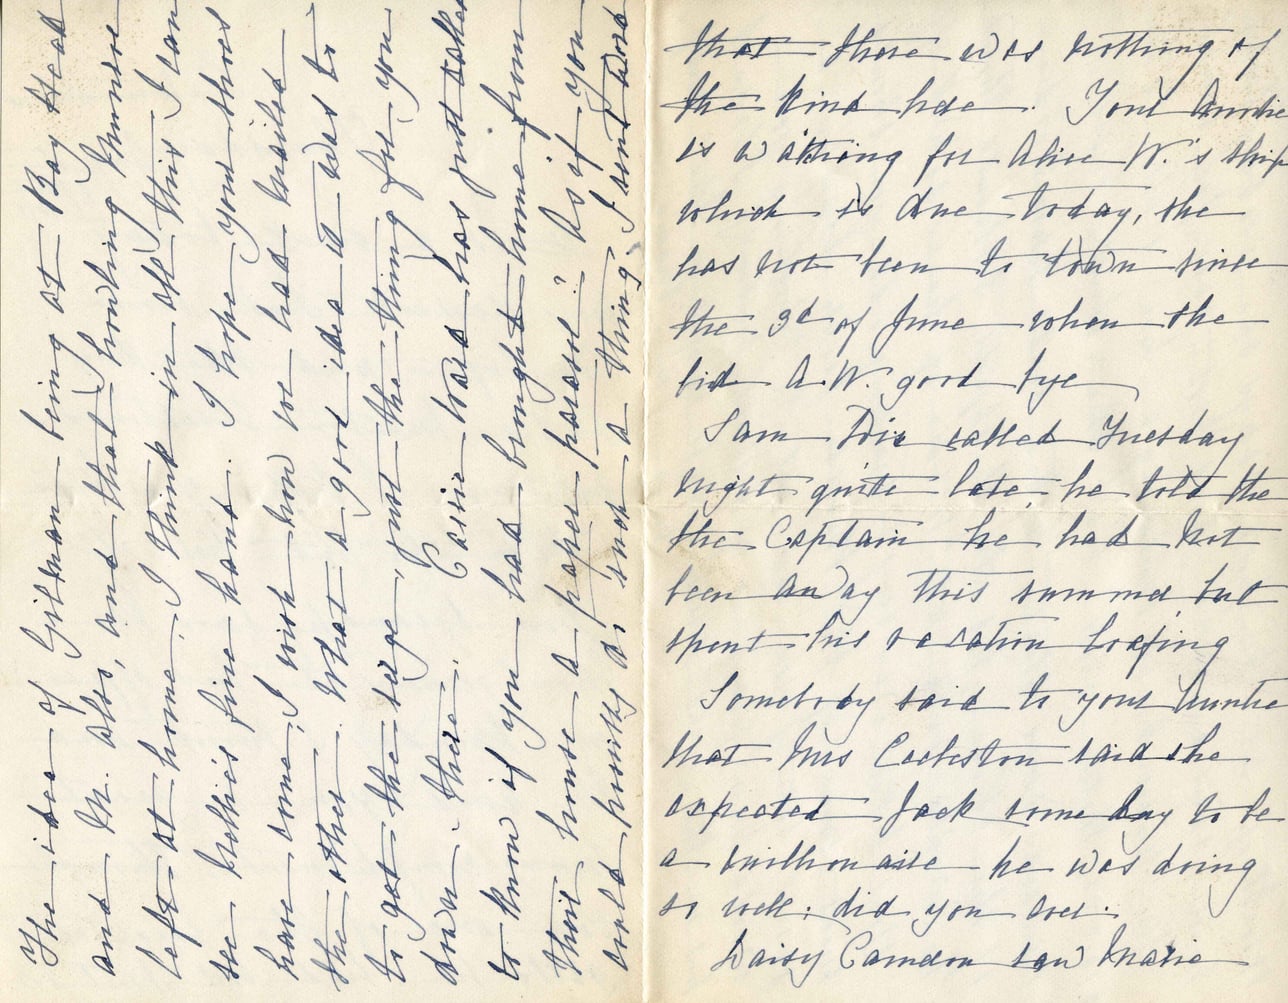 The idea of Gilman being at Bay Head
and M. also, and that howling Munroe
left at home. I think in all this I can
see Nellie's fine hand. I hope your shoes
have come, I wish how we had mailed
the other. What a good idea it was to
to get the serge, just the thing for you
down there. Cassie Ward has just asked
to know if you had brought home from
their house a paper parasol? As if you
could hourly do such a thing. I sent word
that there was nothing of
the kind here. Your Auntie
is waiting for Alice W.'s ship
which is due today, she
has not been to town since
the 3d of June when she
bid A.W. good bye
Sam Dix called Tuesday
night quite late, he told the
the Captain he had not
been away this summer but
spent his vacation loafing
Somebody said to your Auntie
that Mrs said she
expected Jack some day to be
a millionaire he was doing
so well; did you ever.
Daisy Camdon saw Marie